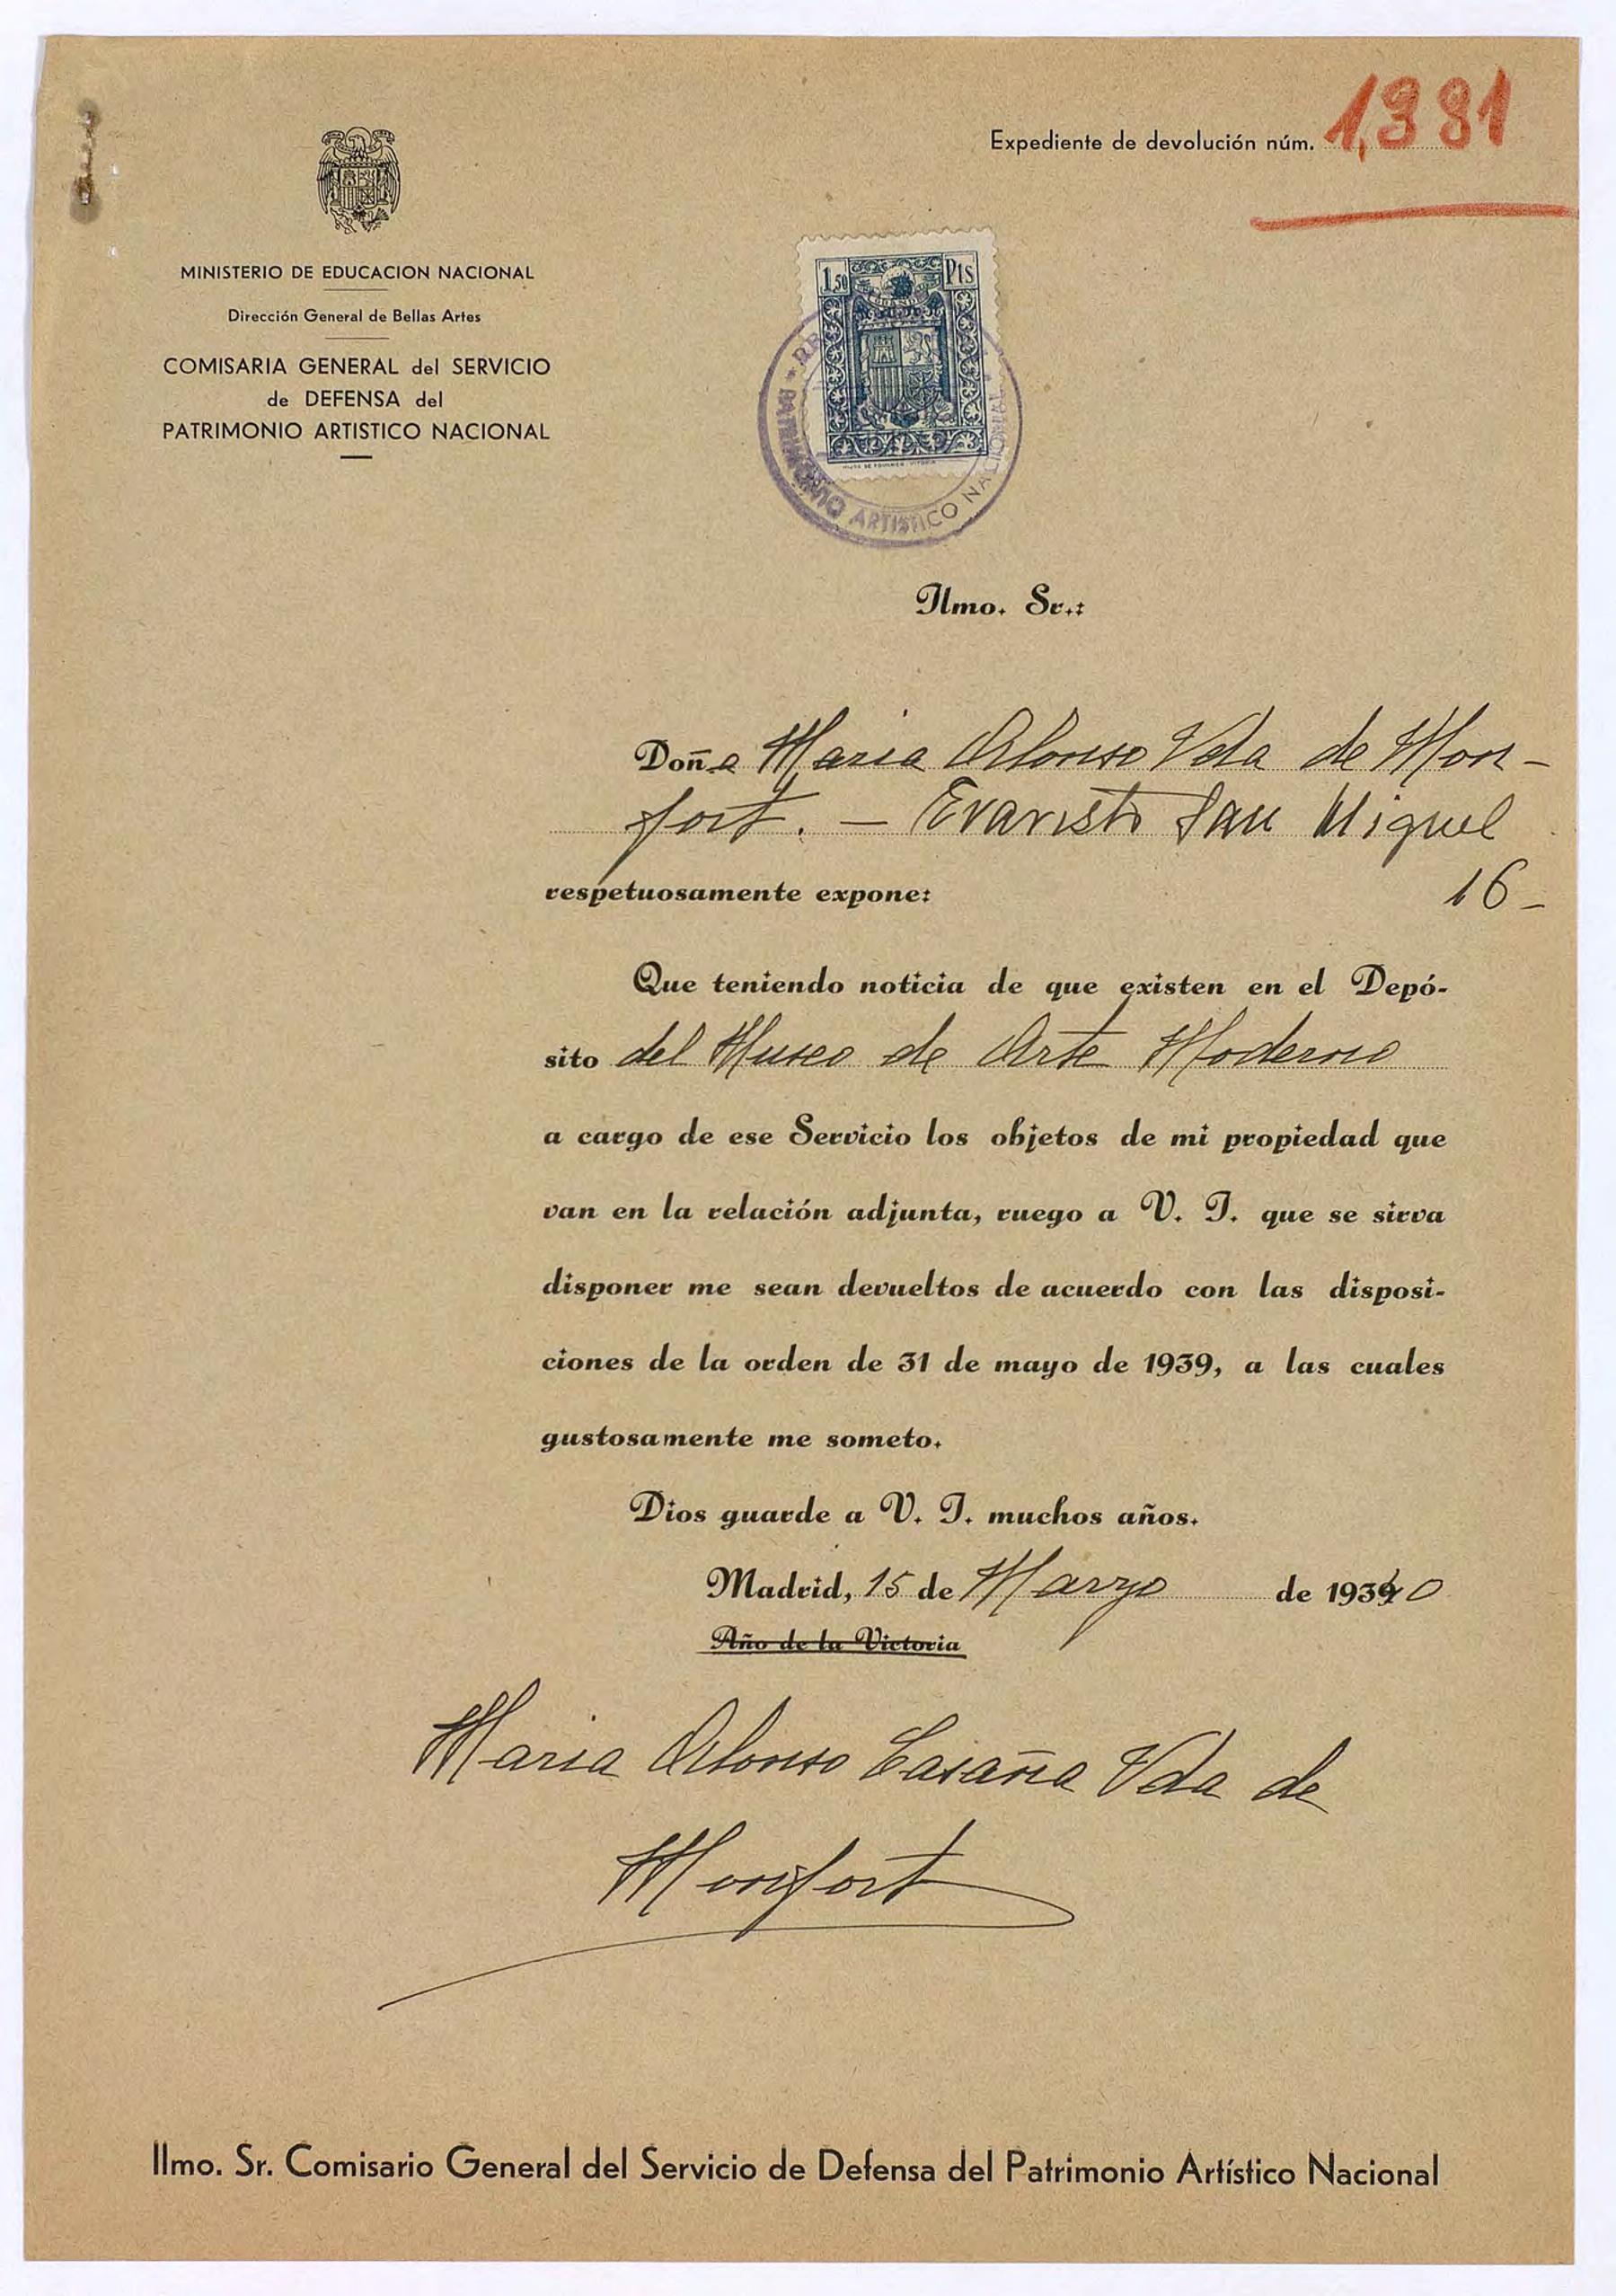 Expediente de devolución núm. 1,381
MINISTERIO DE EDUCACION NACIONAL
Dirección General de Bellas Artes
COMISARIA GENERAL del SERVICIO
de DEFENSA del
PATRIMONIO ARTISTICO NACIONAL
1,50 Pts
PATRIMONIO ARTISTICO NACIONAL
Ilmo. Sr.:
Doña Maria Alonso Vda de Mon-
fort. - Evaristo San Miguel
16-
respetuosamente expone:
Que teniendo noticia de que existen en el Depó-
sito del Museo de Arte Moderno
a cargo de ese Servicio los objetos de mi propiedad que
van en la relación adjunta, ruego a V. I. que se sirva
disponer me sean devueltos de acuerdo con las disposi-
ciones de la orden de 31 de mayo de 1939, a las cuales
gustosamente me someto.
Dios guarde a V. I. muchos años.
Madrid, 15 de Marzo de 1940
Año de la Victoria
Maria Alonso Casaña Vda de
Monfort
Ilmo. Sr. Comisario General del Servicio de Defensa del Patrimonio Artístico Nacional